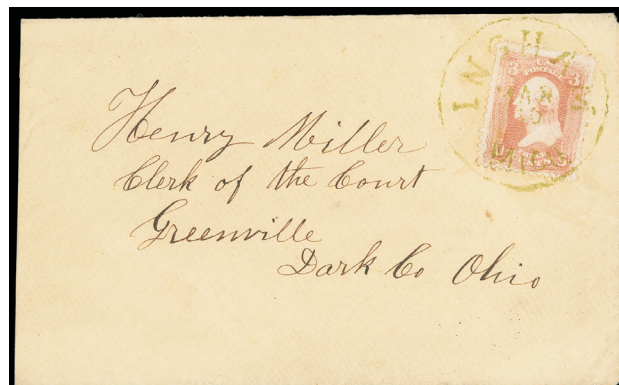 INGHAM
U.S.
3 3
POSTAGE
MAR
MICH
Henry Miller
Clerk of the Court
Greenville
Dark Co Ohio